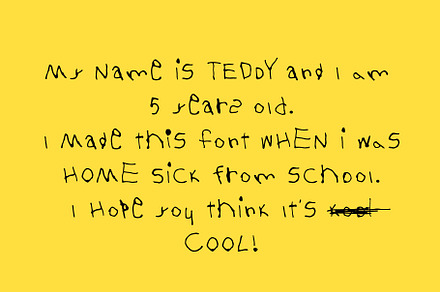 My Name is TEDDY and I am
5 years old.
I Made this font WHEN i was
HOME sick from school.
I Hope you think it's
COOL!